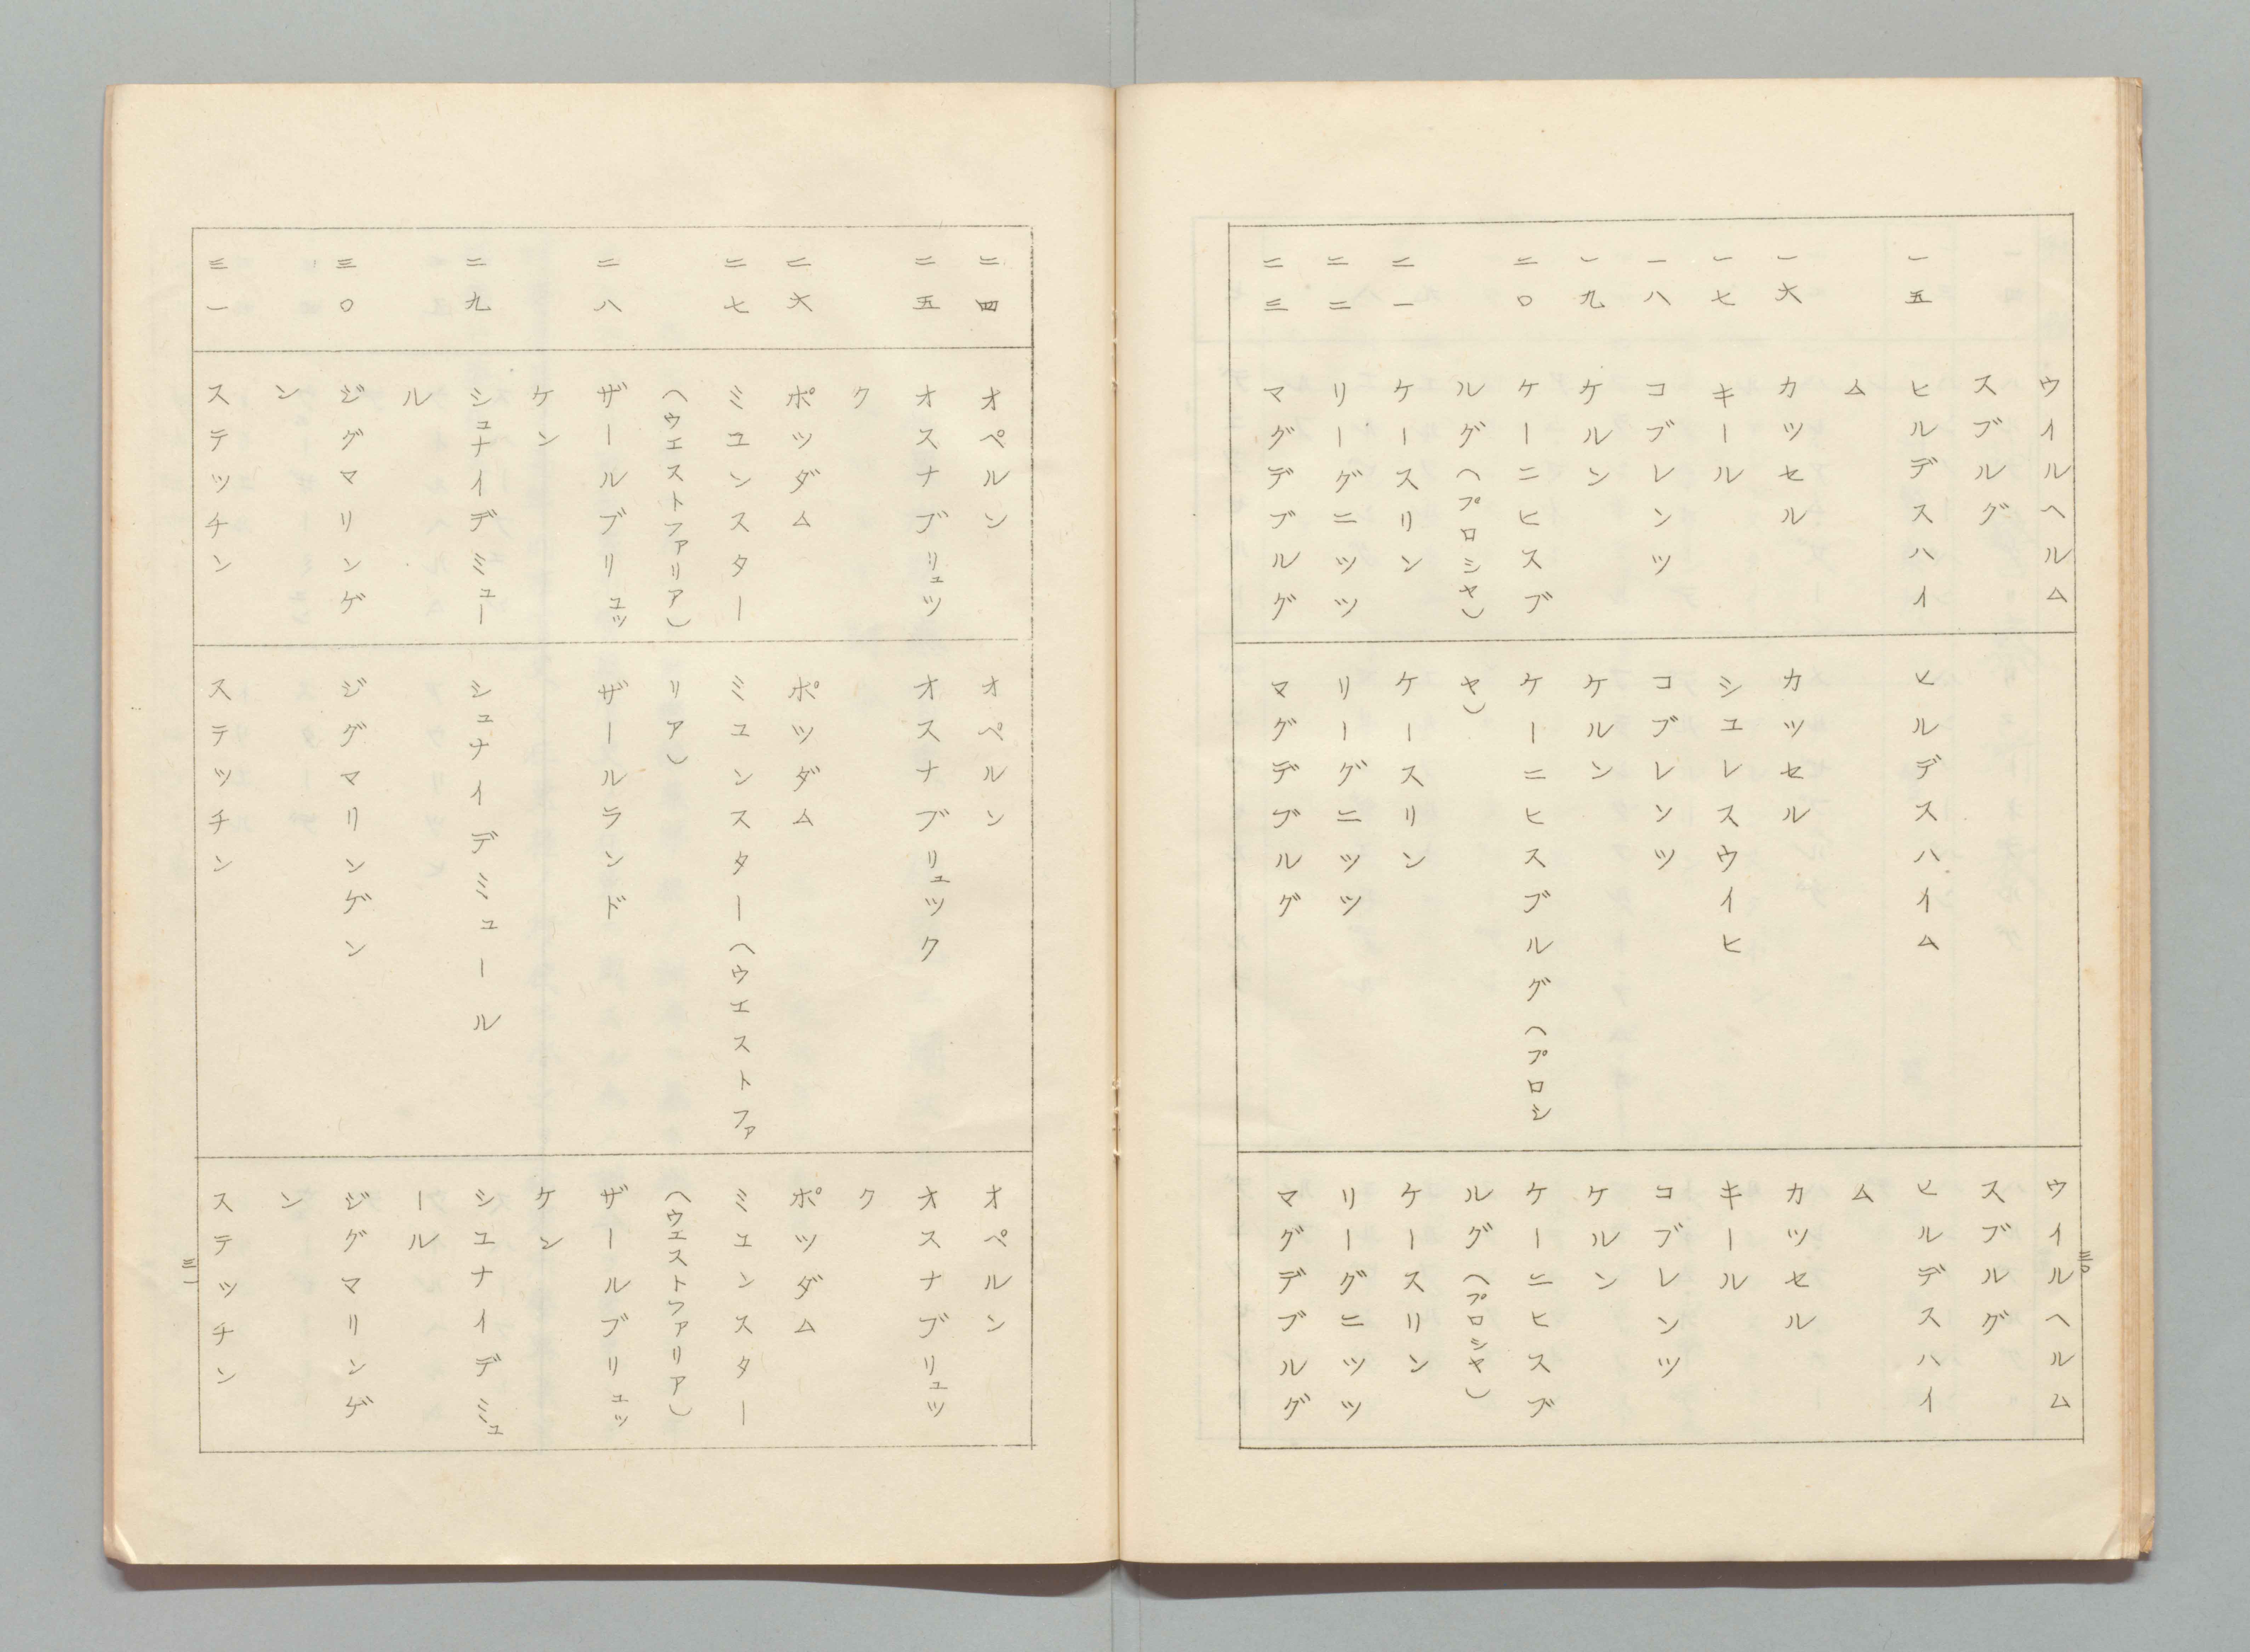 三〇
ウイルヘルム ウイルヘルム
スブルグ スブルグ
一五 ヒルデスハイ ヒルデスハイム ヒルデスハイ
ム ム
一六 カツセル カツセル カツセル
一七 キール シユレスウイヒ キール
一八 コブレンツ コブレンツ コブレンツ
一九 ケルン ケルン ケルン
二〇 ケーニヒスブ ケーニヒスブルグ(プロシ ケーニヒスブ
ルグ(プロシヤ) ヤ) ルグ(プロシヤ)
二一 ケースリン ケースリン ケースリン
二二 リーグニツツ リーグニツツ リーグニツツ
二三 マグデブルグ マグデブルグ マグデブルグ
二四 オペルン オペルン オペルン
二五 オスナブリュツ オスナブリュツク オスナブリュツ
ク ク
二六 ポツダム ポツダム ポツダム
二七 ミユンスター ミユンスター(ウエストファ ミユンスター
(ウエストファリア) リア) (ウエストファリア)
二八 ザールブリュッ ザールランド ザールブリュッ
ケン ケン
二九 シュナイデミュー シュナイデミュール シユナイデミュ
ル ール
三〇 ジグマリンゲ ジグマリンゲン ジグマリンゲ
ン ン
三一 ステツチン ステツチン ステツチン
三一